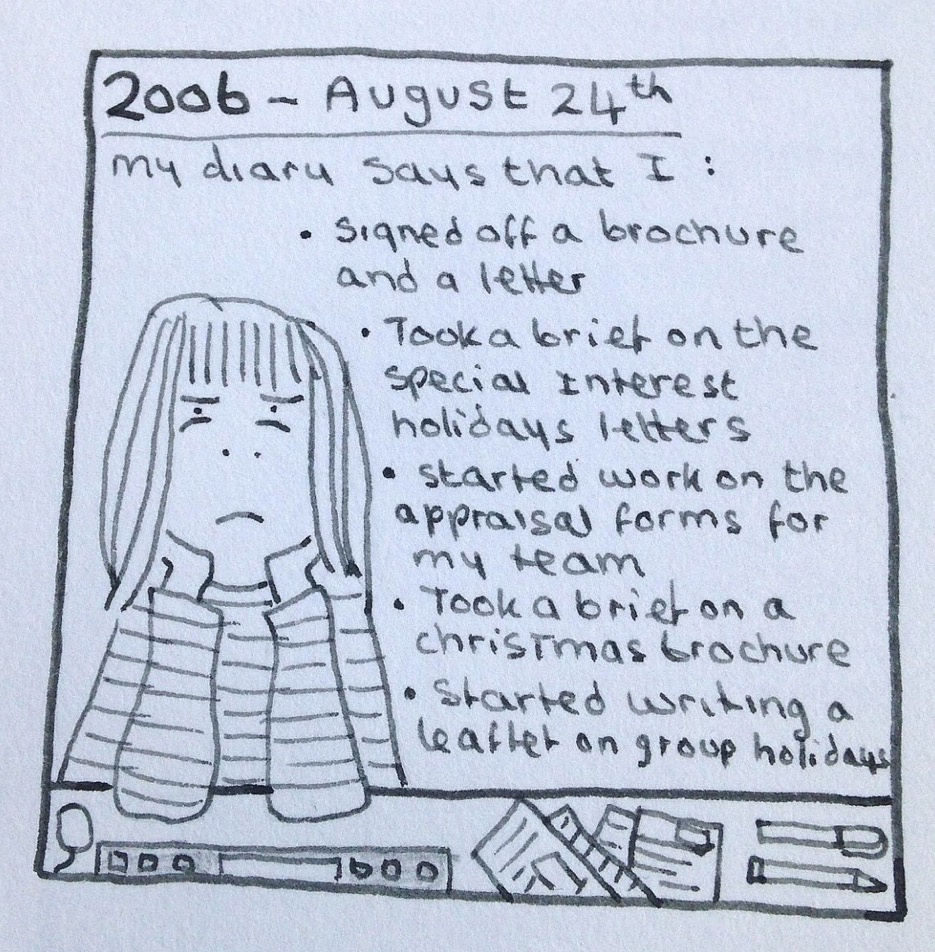 2006 - August 24th
my diary says that I :
• signed off a brochure
and a letter
• Took a brief on the
special interest
holidays letters
• started work on the
appraisal forms for
my team
• Took a brief on a
christmas brochure
• Started writing a
leaflet on group holidays